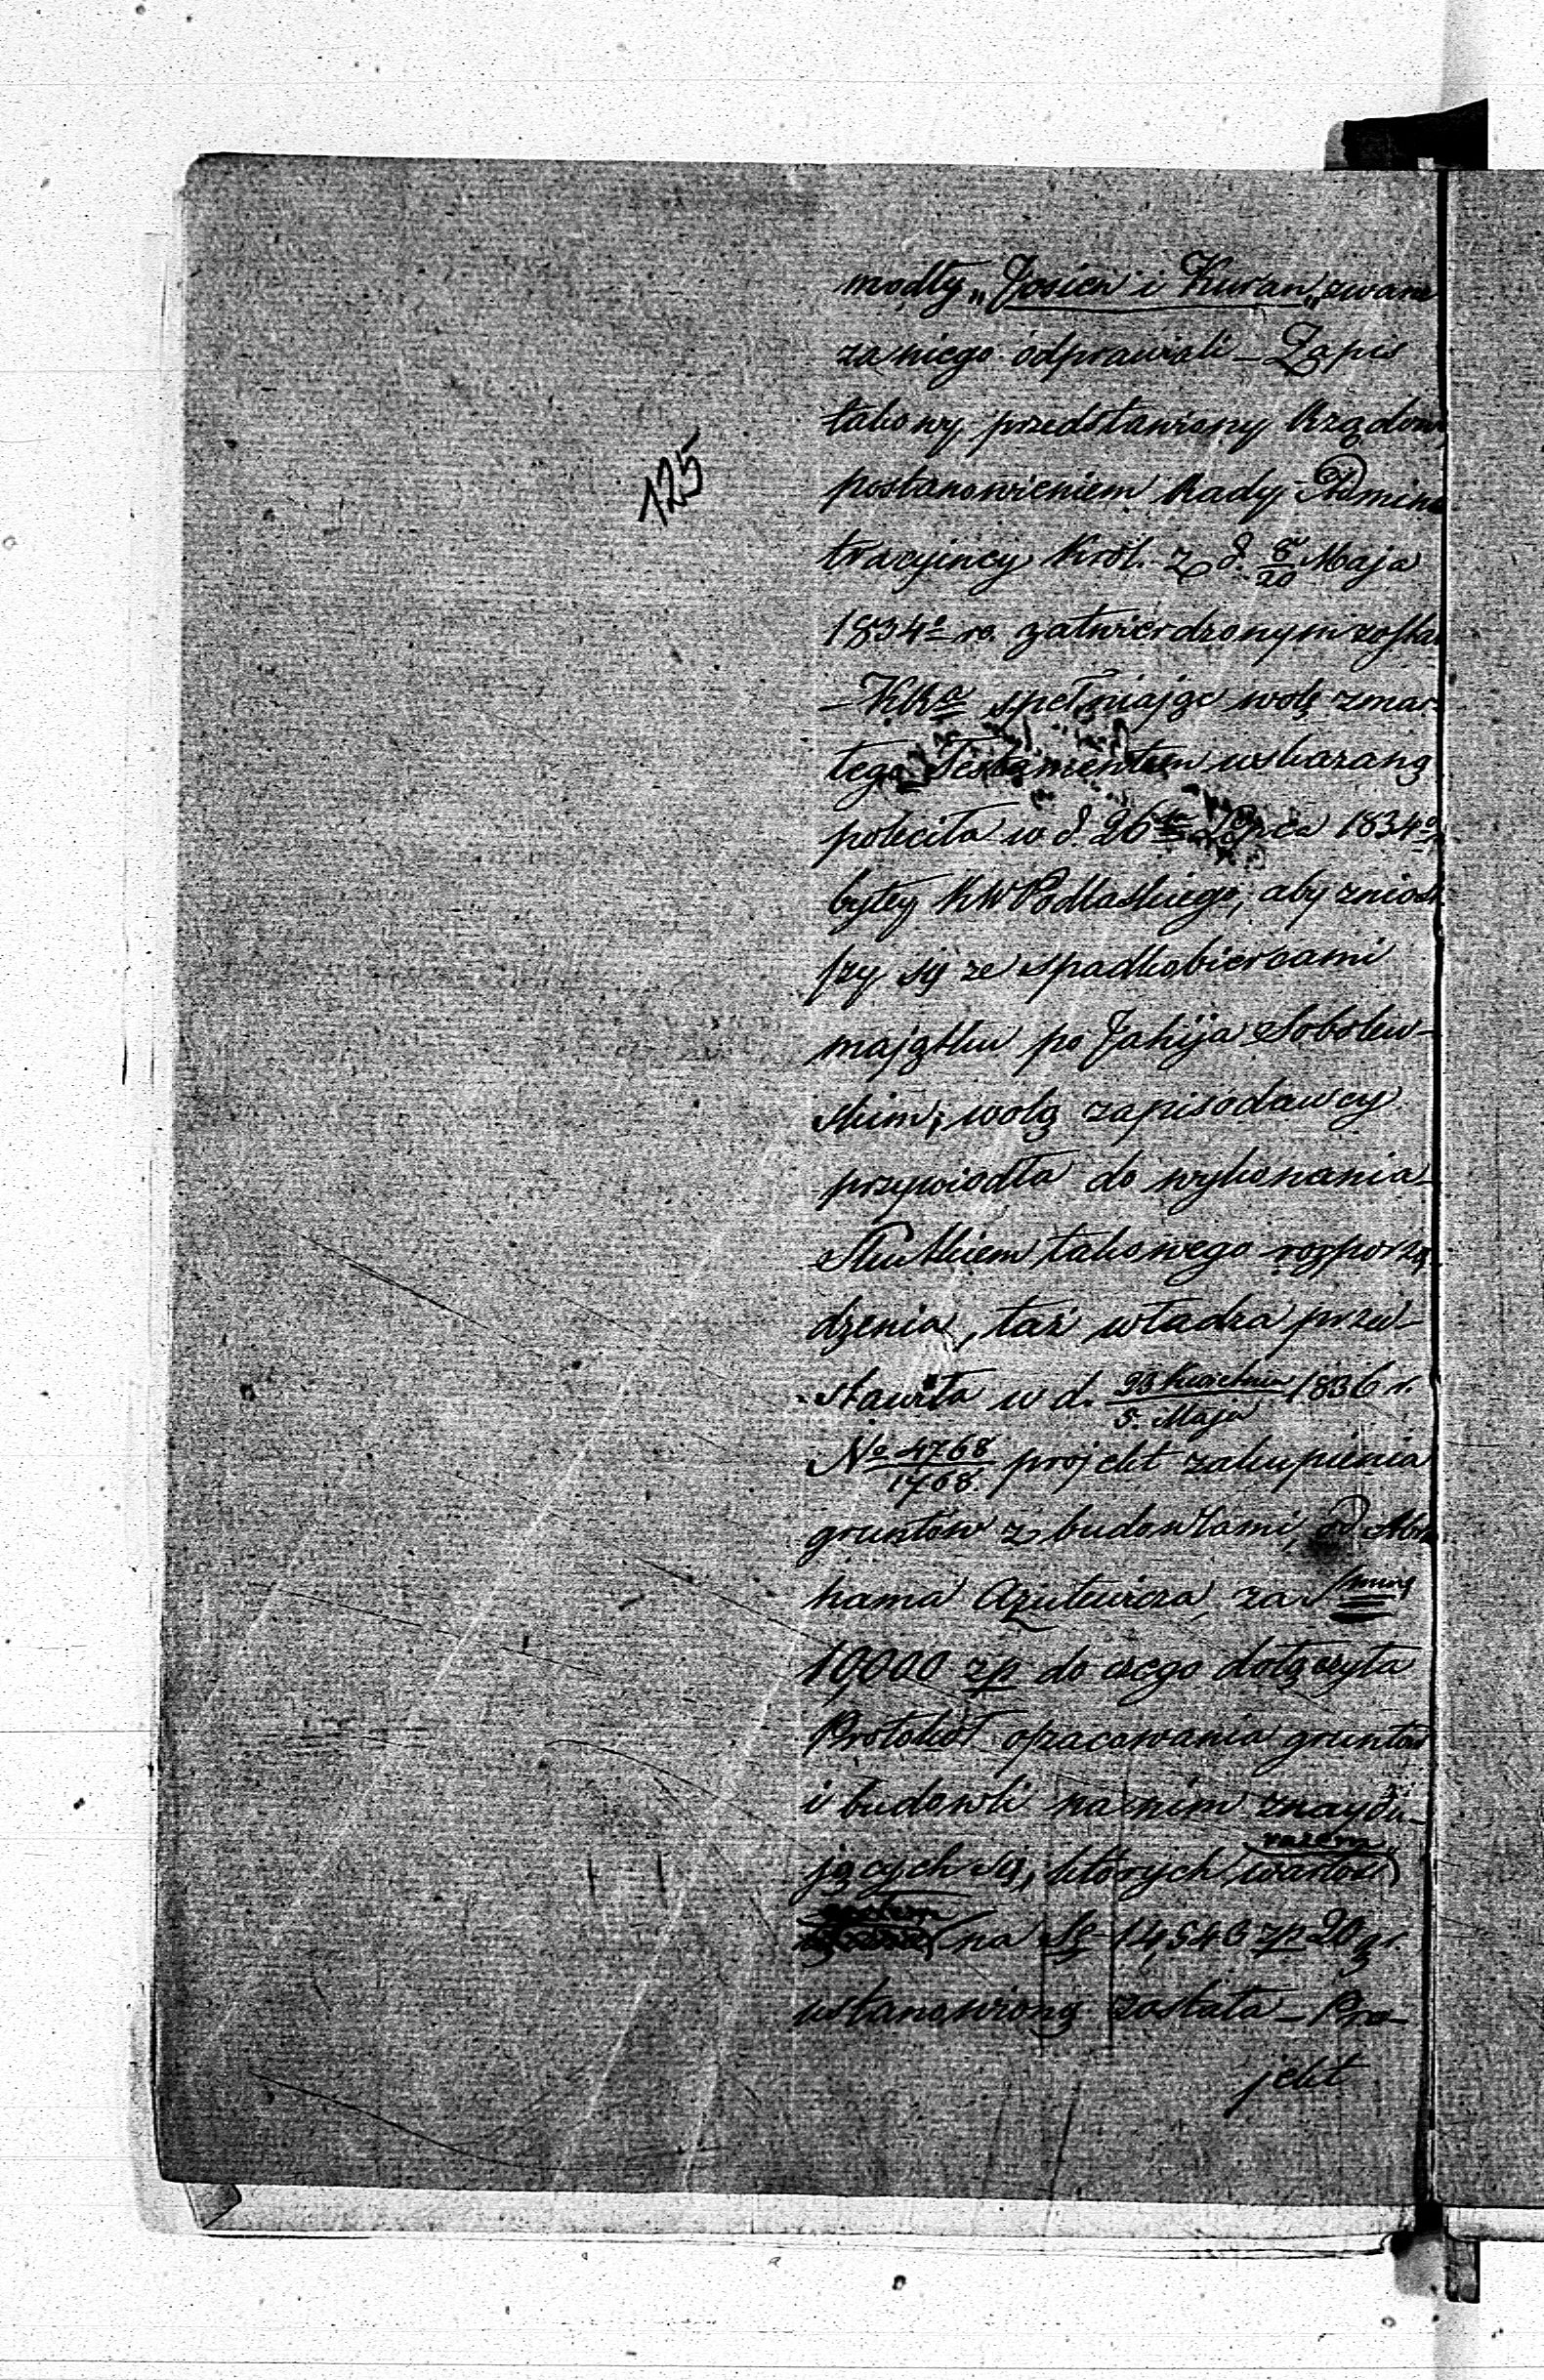 modły „Josień i Kuran„ zwane
za niego odprawiali – Zapis
takowy przedstawiony Rządowi,
postanowieniem Rady Adminis
tracyjney Król. z d. 8/20 Maja
1834º r. zatwierdzonym został
– KRª spełniając wolę zmar-
tego Testamentem wskazaną
poleciła w d. 26 Lipca 1834º
byłey KW Podlaskiego, aby zniosł
szy się ze spadkobiercami
majątku po Jahija Sobolew-
skim, wolą zapisodawcy
przywiodła do wykonania –
Skutkiem takowego rozporzą
dzenia, taż władza przed-
stawiła w d. 23 Kwietnia/5. Maja 1836 r.
No 4768/1768. projekt zakupienia
gruntów z budowlami, od Abra
hama Azulewicza, za summę
10,000 zp do czego dołączyła
Protokół opracowania gruntów
i budowli na nim znaydu-
jących się, których wartość razem
na Sę 14,546 zp 20 gr.
ustanowioną została – Pro-
jekt
125